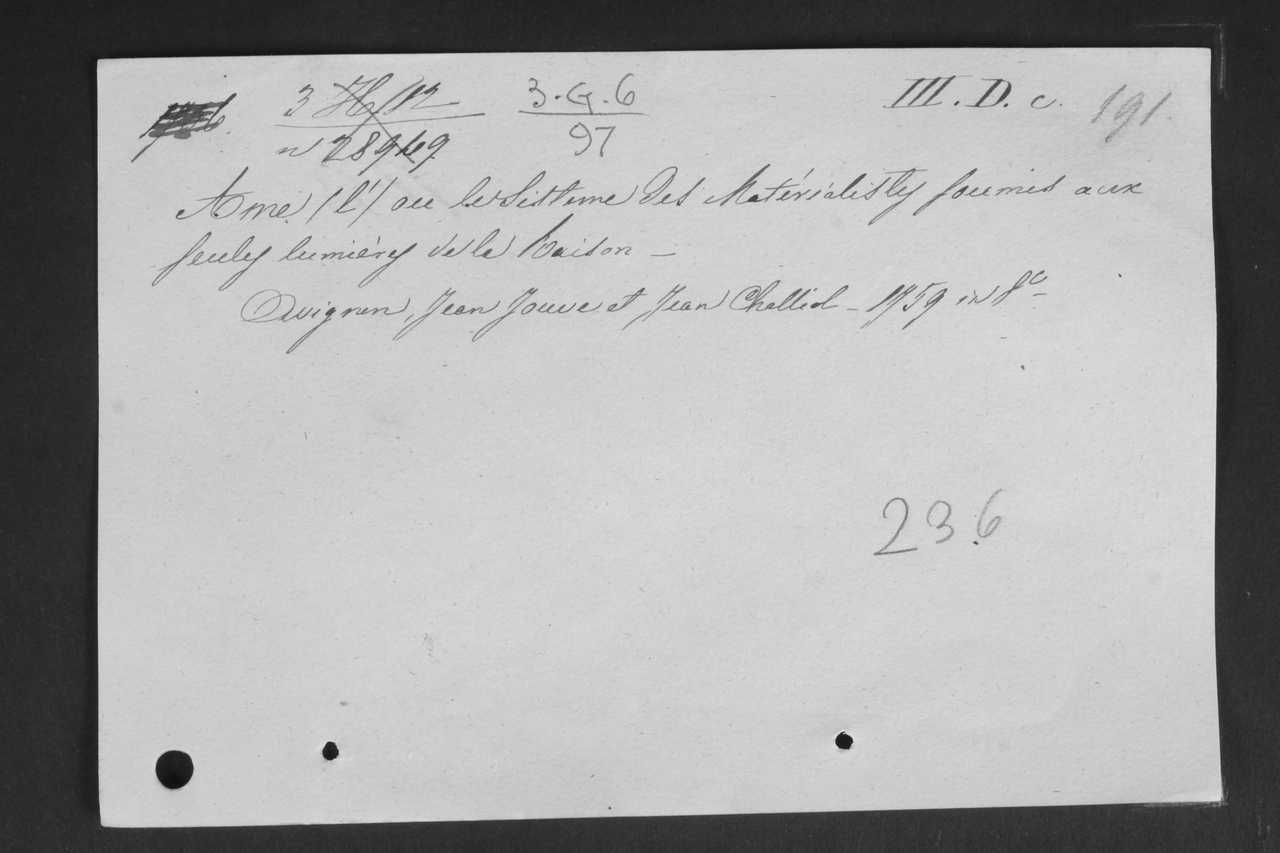 3 H/12 3.G.6 III.D.c. 191.
n 28949 97
Ame (l') ou le Sisteme des Matérialistes soumis aux
seules lumières de la Raison –
Avignon, Jean Jouve et Jean Challiol – 1759 in 8º –
236